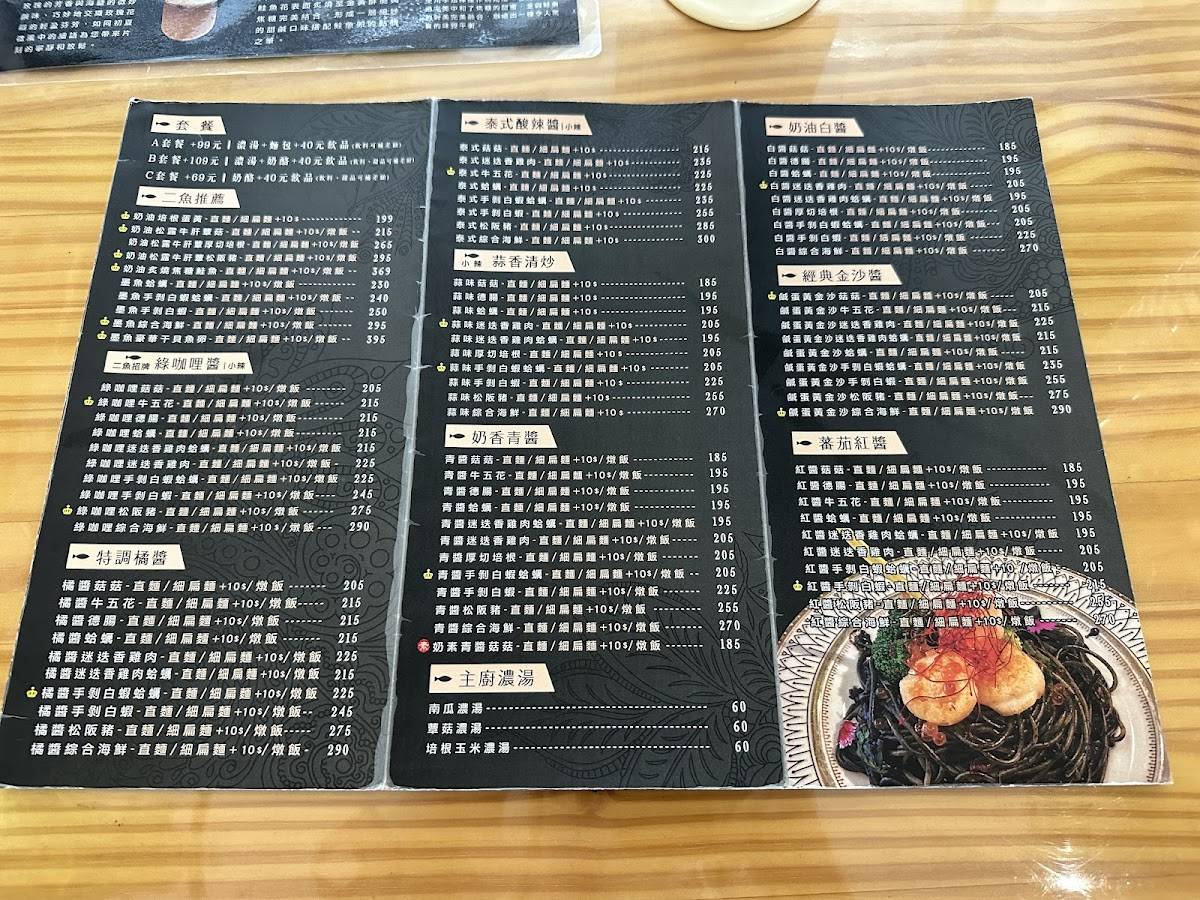 套餐
A套餐 +99元｜濃湯+麵包+40元飲品(飲料可補差額)
B套餐+109元｜濃湯+奶酪+40元飲品
C套餐 +69元｜奶酪+40元飲品
二魚推薦
奶油培根蛋黃-直麵/細扁麵+10$ 199
奶油松露牛肝蕈菇-直麵/細扁麵+10$/燉飯 215
奶油松露牛肝蕈厚切培根-直麵/細扁麵+10$/燉飯 265
奶油松露牛肝蕈松阪豬-直麵/細扁麵+10$/燉飯 295
奶油炙燒焦糖鮭魚-直麵/細扁麵+10$/燉飯 369
墨魚蛤蠣-直麵/細扁麵+10$/燉飯 230
墨魚手剝白蝦蛤蠣-直麵/細扁麵+10$/燉飯 240
墨魚手剝白蝦-直麵/細扁麵+10$/燉飯 250
墨魚綜合海鮮-直麵/細扁麵+10$/燉飯 295
墨魚豪華干貝魚卵-直麵/細扁麵+10$/燉飯 395
二魚招牌 綠咖哩醬 | 小辣
綠咖哩菇菇-直麵/細扁麵+10$/燉飯 205
綠咖哩牛五花-直麵/細扁麵+10$/燉飯 215
綠咖哩德腸-直麵/細扁麵+10$/燉飯 215
綠咖哩蛤蠣-直麵/細扁麵+10$/燉飯 215
綠咖哩迷迭香雞肉蛤蠣-直麵/細扁麵+10$/燉飯 215
綠咖哩迷迭香雞肉-直麵/細扁麵+10$/燉飯 225
綠咖哩手剝白蝦蛤蠣-直麵/細扁麵+10$/燉飯 225
綠咖哩手剝白蝦-直麵/細扁麵+10$/燉飯 245
綠咖哩松阪豬-直麵/細扁麵+10$/燉飯 275
綠咖哩綜合海鮮-直麵/細扁麵+10$/燉飯 290
特調橘醬
橘醬菇菇-直麵/細扁麵+10$/燉飯 205
橘醬牛五花-直麵/細扁麵+10$/燉飯 215
橘醬德腸-直麵/細扁麵+10$/燉飯 215
橘醬蛤蠣-直麵/細扁麵+10$/燉飯 215
橘醬迷迭香雞肉-直麵/細扁麵+10$/燉飯 225
橘醬迷迭香雞肉蛤蠣-直麵/細扁麵+10$/燉飯 215
橘醬手剝白蝦蛤蠣-直麵/細扁麵+10$/燉飯 225
橘醬手剝白蝦-直麵/細扁麵+10$/燉飯 245
橘醬松阪豬-直麵/細扁麵+10$/燉飯 275
橘醬綜合海鮮-直麵/細扁麵+10$/燉飯 290
泰式酸辣醬 | 小辣
泰式菇菇-直麵/細扁麵+10$ 215
泰式迷迭香雞肉-直麵/細扁麵+10$ 235
泰式牛五花-直麵/細扁麵+10$ 225
泰式蛤蠣-直麵/細扁麵+10$ 225
泰式手剝白蝦蛤蠣-直麵/細扁麵+10$ 235
泰式手剝白蝦-直麵/細扁麵+10$ 255
泰式松阪豬-直麵/細扁麵+10$ 285
泰式綜合海鮮-直麵/細扁麵+10$ 300
小辣 蒜香清炒
蒜味菇菇-直麵/細扁麵+10$ 185
蒜味德腸-直麵/細扁麵+10$ 195
蒜味蛤蠣-直麵/細扁麵+10$ 195
蒜味迷迭香雞肉-直麵/細扁麵+10$ 205
蒜味迷迭香雞肉蛤蠣-直麵/細扁麵+10$ 195
蒜味厚切培根-直麵/細扁麵+10$ 205
蒜味手剝白蝦蛤蠣-直麵/細扁麵+10$ 205
蒜味手剝白蝦-直麵/細扁麵+10$ 225
蒜味松阪豬-直麵/細扁麵+10$ 255
蒜味綜合海鮮-直麵/細扁麵+10$ 270
奶香青醬
青醬菇菇-直麵/細扁麵+10$/燉飯 185
青醬牛五花-直麵/細扁麵+10$/燉飯 195
青醬德腸-直麵/細扁麵+10$/燉飯 195
青醬蛤蠣-直麵/細扁麵+10$/燉飯 195
青醬迷迭香雞肉蛤蠣-直麵/細扁麵+10$/燉飯 195
青醬迷迭香雞肉-直麵/細扁麵+10$/燉飯 205
青醬厚切培根-直麵/細扁麵+10$/燉飯 205
青醬手剝白蝦蛤蠣-直麵/細扁麵+10$/燉飯 205
青醬手剝白蝦-直麵/細扁麵+10$/燉飯 225
青醬松阪豬-直麵/細扁麵+10$/燉飯 255
青醬綜合海鮮-直麵/細扁麵+10$/燉飯 270
素 奶素青醬菇菇-直麵/細扁麵+10$/燉飯 185
主廚濃湯
南瓜濃湯 60
蕈菇濃湯 60
培根玉米濃湯 60
奶油白醬
白醬菇菇-直麵/細扁麵+10$/燉飯 185
白醬德腸-直麵/細扁麵+10$/燉飯 195
白醬蛤蠣-直麵/細扁麵+10$/燉飯 195
白醬迷迭香雞肉-直麵/細扁麵+10$/燉飯 205
白醬迷迭香雞肉蛤蠣-直麵/細扁麵+10$/燉飯 195
白醬厚切培根-直麵/細扁麵+10$/燉飯 205
白醬手剝白蝦蛤蠣-直麵/細扁麵+10$/燉飯 205
白醬手剝白蝦-直麵/細扁麵+10$/燉飯
白醬綜合海鮮-直麵/細扁麵+10$/燉飯 270
經典金沙醬
鹹蛋黃金沙菇菇-直麵/細扁麵+10$/燉飯 205
鹹蛋黃金沙牛五花-直麵/細扁麵+10$/燉飯 215
鹹蛋黃金沙迷迭香雞肉-直麵/細扁麵+10$/燉飯 225
鹹蛋黃金沙迷迭香雞肉蛤蠣-直麵/細扁麵+10$/燉飯 215
鹹蛋黃金沙蛤蠣-直麵/細扁麵+10$/燉飯 215
鹹蛋黃金沙手剝白蝦-直麵/細扁麵+10$/燉飯 235
鹹蛋黃金沙松阪豬-直麵/細扁麵+10$/燉飯 275
鹹蛋黃金沙綜合海鮮-直麵/細扁麵+10$/燉飯 290
蕃茄紅醬
紅醬菇菇-直麵/細扁麵+10$/燉飯 185
紅醬德腸-直麵/細扁麵+10$/燉飯 195
紅醬牛五花-直麵/細扁麵+10$/燉飯 195
紅醬蛤蠣-直麵/細扁麵+10$/燉飯 195
紅醬迷迭香雞肉蛤蠣-直麵/細扁麵+10$/燉飯 195
紅醬迷迭香雞肉-直麵/細扁麵+10$/燉飯 205
紅醬手剝白蝦蛤蠣-直麵/細扁麵+10$/燉飯 205
紅醬手剝白蝦-直麵/細扁麵+10$/燉飯 215
紅醬松阪豬-直麵/細扁麵+10$/燉飯 255
紅醬綜合海鮮-直麵/細扁麵+10$/燉飯 270